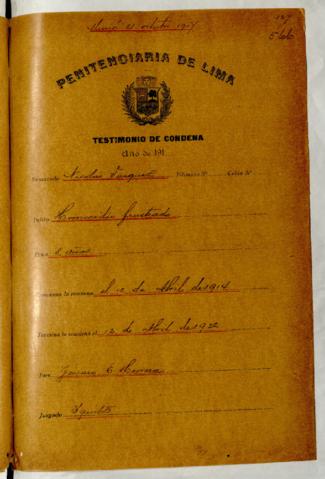 Murió 21 octubre 1917
566
PENITENCIARIA DE LIMA
TESTIMONIO DE CONDENA
Año de 191
Sentenciado Nicolás Número Nº Celda Nº
Delito Homicidio frustrado
Pena 8 años
Comienza la condena el 12 de Abril de 1914
Termina la condena el 12 de Abril de 1922
Juez Genaro E. Herrera
Juzgado Iquitos